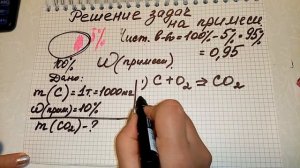 Решение задач
на примеси
5%
Чист. в-во = 100% - 5% = 95%
= 0,95
100%
W(примеси)
Дано:
m(C) = 1т = 1000кг
W(прим) = 10%
m(CO₂) - ?
1) C + O₂ ⇒ CO₂